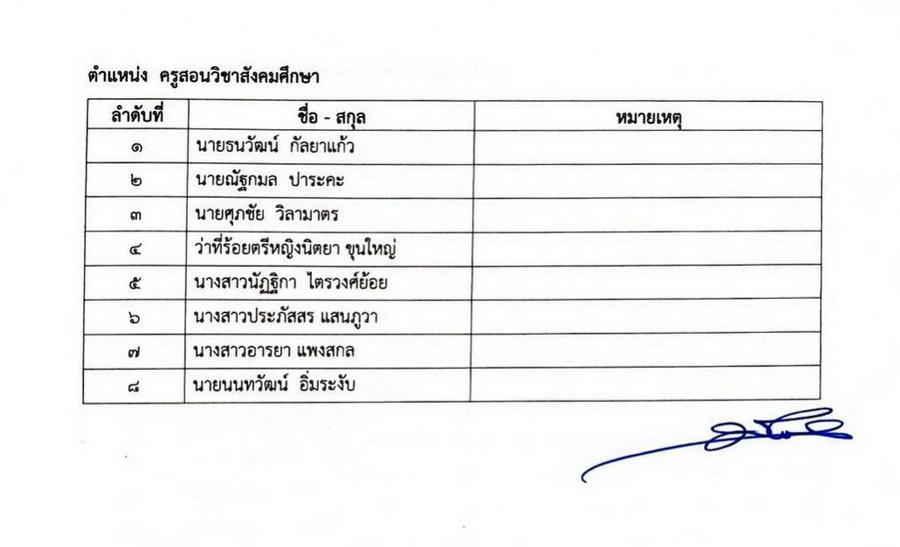 ตำแหน่ง ครูสอนวิชาสังคมศึกษา
ลำดับที่ ชื่อ - สกุล หมายเหตุ
๑ นายธนวัฒน์ กัลยาแก้ว
๒ นายณัฐกมล ปาระคะ
๓ นายศุภชัย วิลามาตร
๔ ว่าที่ร้อยตรีหญิงนิตยา ขุนใหญ่
๕ นางสาวนัฏฐิกา ไตรวงศ์ย้อย
๖ นางสาวประภัสสร แสนภูวา
๗ นางสาวอารยา แพงสกล
๘ นายนนทวัฒน์ อิ่มระงับ